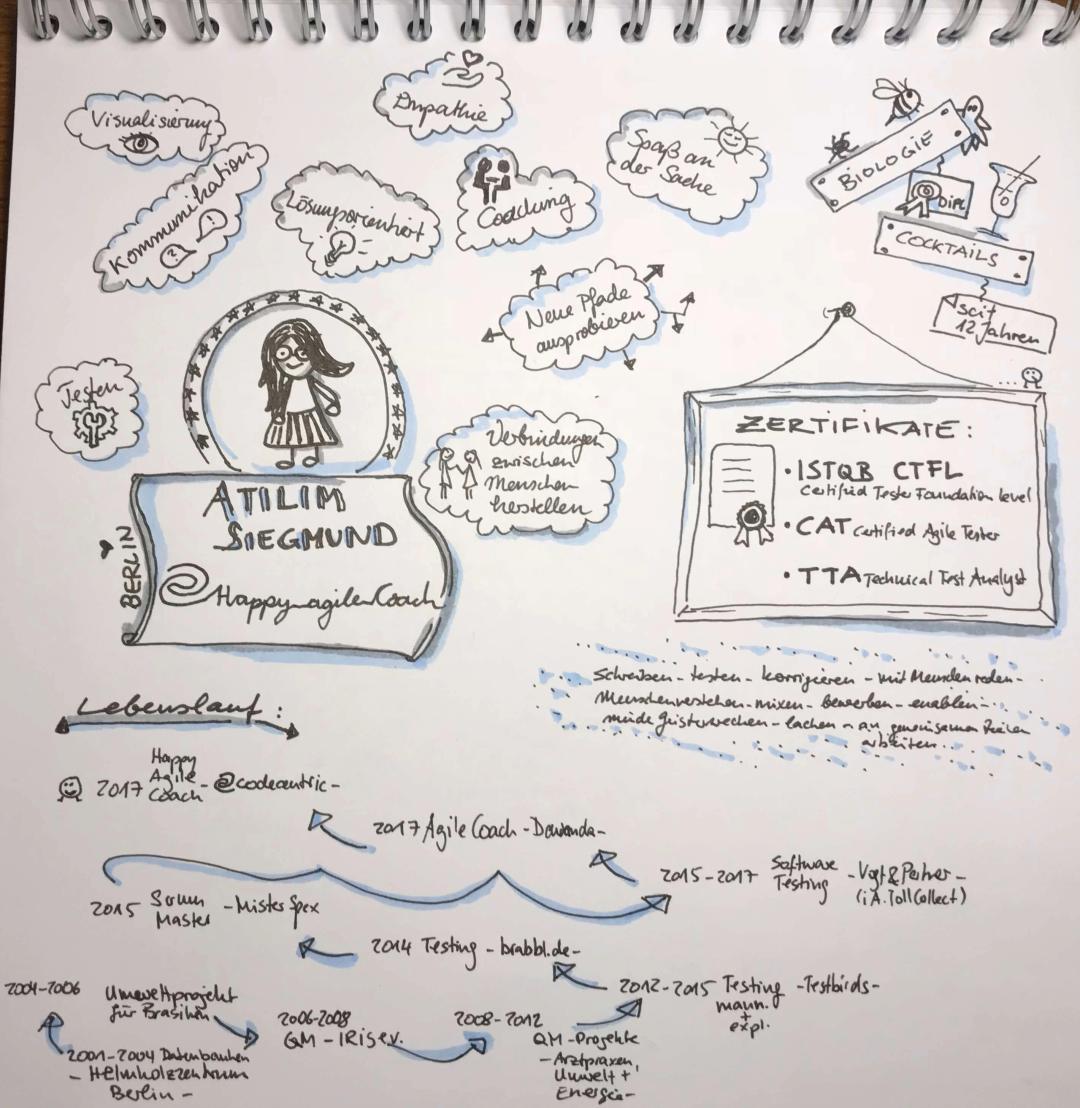 Visualisierung
Kommunikation
?
!
Empathie
Lösungsorientiert
Coaching
Spaß an
der Sache
BIOLOGIE
Dipl
COCKTAILS
seit
12 Jahren
Neue Pfade
ausprobieren
Testen
Verbindungen
zwischen
Menschen
herstellen
ATILIM
SIEGMUND
@Happy_agile_Coach
BERLIN
ZERTIFIKATE:
• ISTQB CTFL
Certified Tester Foundation level
• CAT Certified Agile Tester
• TTA Technical Test Analyst
Schreiben - testen - korrigieren - mit Menschen reden -
Menschen verstehen - mixen - bewerben - enablen -
müde Geister wecken - lachen - an gemeinsamen Zielen
arbeiten..
Lebenslauf:
2017 Happy
Agile
Coach - @codecentric -
2017 Agile Coach - Dawanda -
2015-2017 Software
Testing - Vogt & Partner -
(i.A. Toll Collect)
2015 Scrum
Master - Mister Spex
2014 Testing - brabbl.de -
2012-2015 Testing - Testbirds -
mann.
+
expl.
2004-2006 Umweltprojekt
für Brasilien
2006-2008
QM - IRIS e.V.
2008-2012
QM - Projekte
- Arztpraxen,
Umwelt +
Energie -
2001-2004 Datenbanken
- Helmholzzentrum
Berlin -